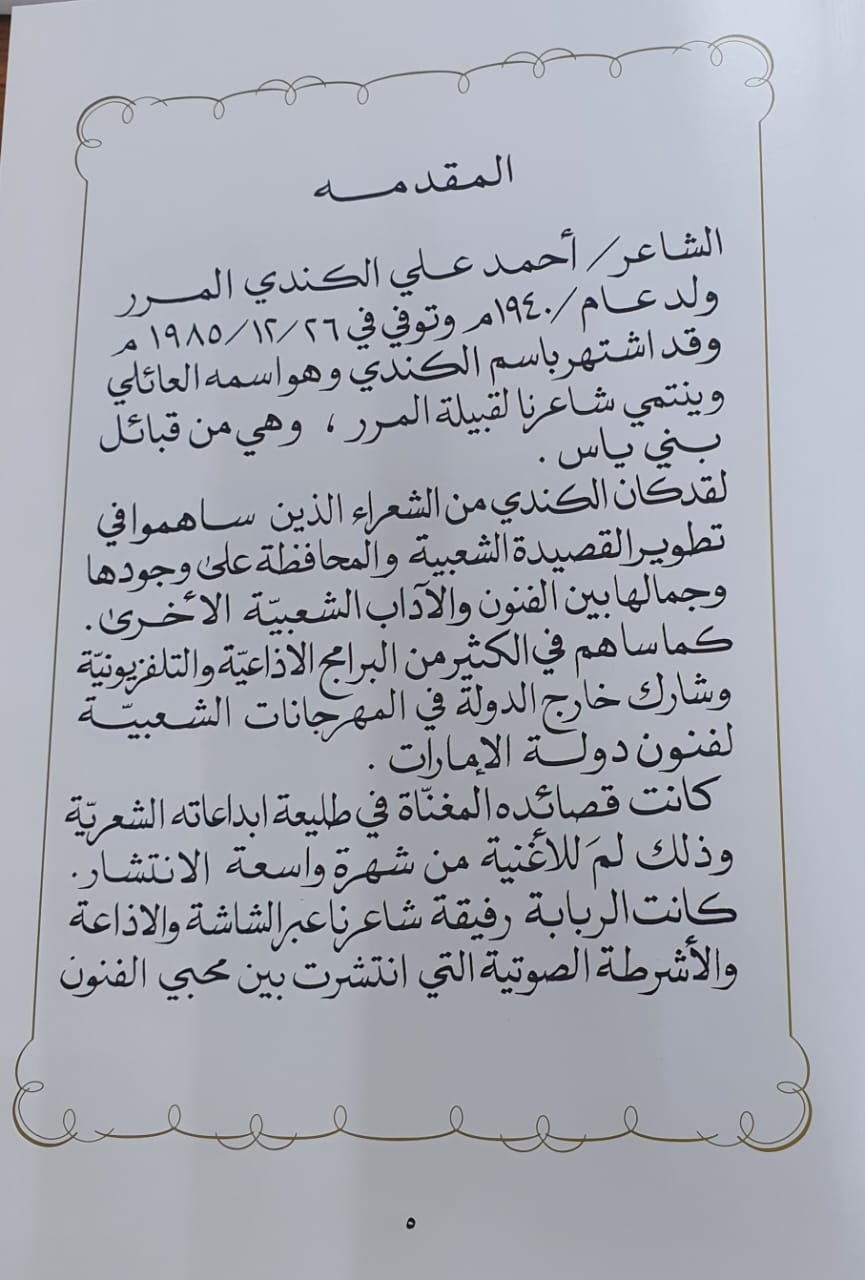 المقدمه
الشاعر/ أحمد علي الكندي المرر
ولد عام/١٩٤٠م وتوفي في ١٩٨٥/١٢/٢٦ م
وقد اشتهر باسم الكندي وهو اسمه العائلي
وينتمي شاعرنا لقبيلة المرر ، وهي من قبائل
بني ياس .
لقد كان الكندي من الشعراء الذين ساهموا في
تطوير القصيدة الشعبية والمحافظة على وجودها
وجمالها بين الفنون والآداب الشعبيّة الأخرىٰ.
كما ساهم في الكثير من البرامج الاذاعيّة والتلفزيونيّة
وشارك خارج الدولة في المهرجانات الشعبيّة
لفنون دولة الإمارات .
كانت قصائده المغنّاة في طليعة ابداعاته الشعريّة
وذلك لمَ للأغنية من شهرة واسعة الانتشار.
كانت الربابة رفيقة شاعرنا عبر الشاشة والاذاعة
والأشرطة الصوتية التي انتشرت بين محبي الفنون
٥